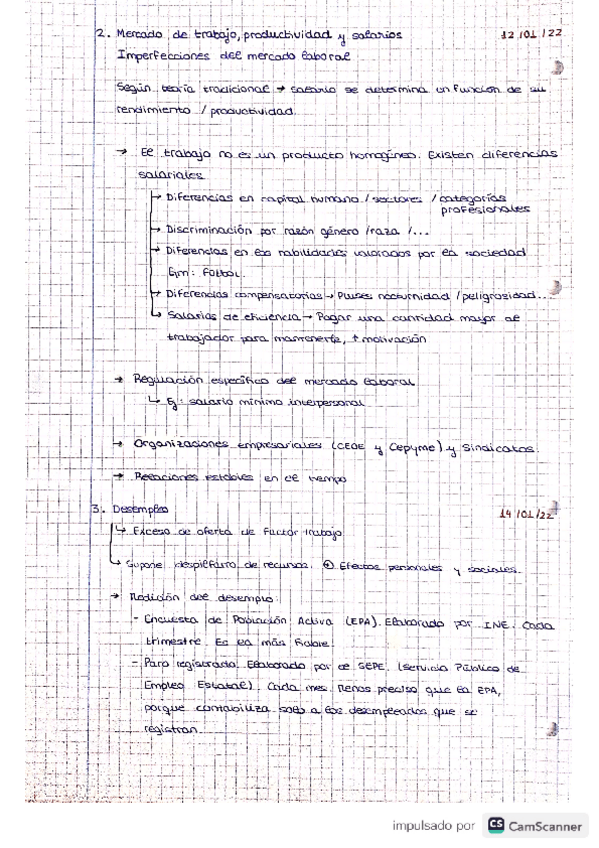 2. Mercado de trabajo, productividad y salarios 12/01/22
Imperfecciones del mercado laboral
Según teoría tradicional → salario se determina en función de su
rendimiento / productividad.
→ El trabajo no es un producto homogéneo. Existen diferencias
salariales
↳ Diferencias en capital humano / sectores / categorías
profesionales
↳ Discriminación por razón género / raza / ...
↳ Diferencias en las habilidades valoradas por la sociedad
Ejm: Fútbol.
↳ Diferencias compensatorias → Pluses nocturnidad / peligrosidad...
↳ Salarios de eficiencia → Pagar una cantidad mayor al
trabajador para mantenerle, ↑ motivación
→ Regulación específica del mercado laboral
↳ Ej: salario mínimo interpersonal
→ Organizaciones empresariales (CEOE y Cepyme) y Sindicatos.
→ Relaciones estables en el tiempo
3. Desempleo 14/01/22
↳ Exceso de oferta de factor trabajo
↳ Supone despilfarro de recursos. ⊕ Efectos personales y sociales.
→ Medición del desempleo:
- Encuesta de Población Activa (EPA). Elaborado por INE. Cada
trimestre. Es la más fiable.
- Paro registrado. Elaborado por el SEPE (Servicio Público de
Empleo Estatal). Cada mes. Menos preciso que la EPA,
porque contabiliza solo a los desempleados que se
registran.
impulsado por CS CamScanner